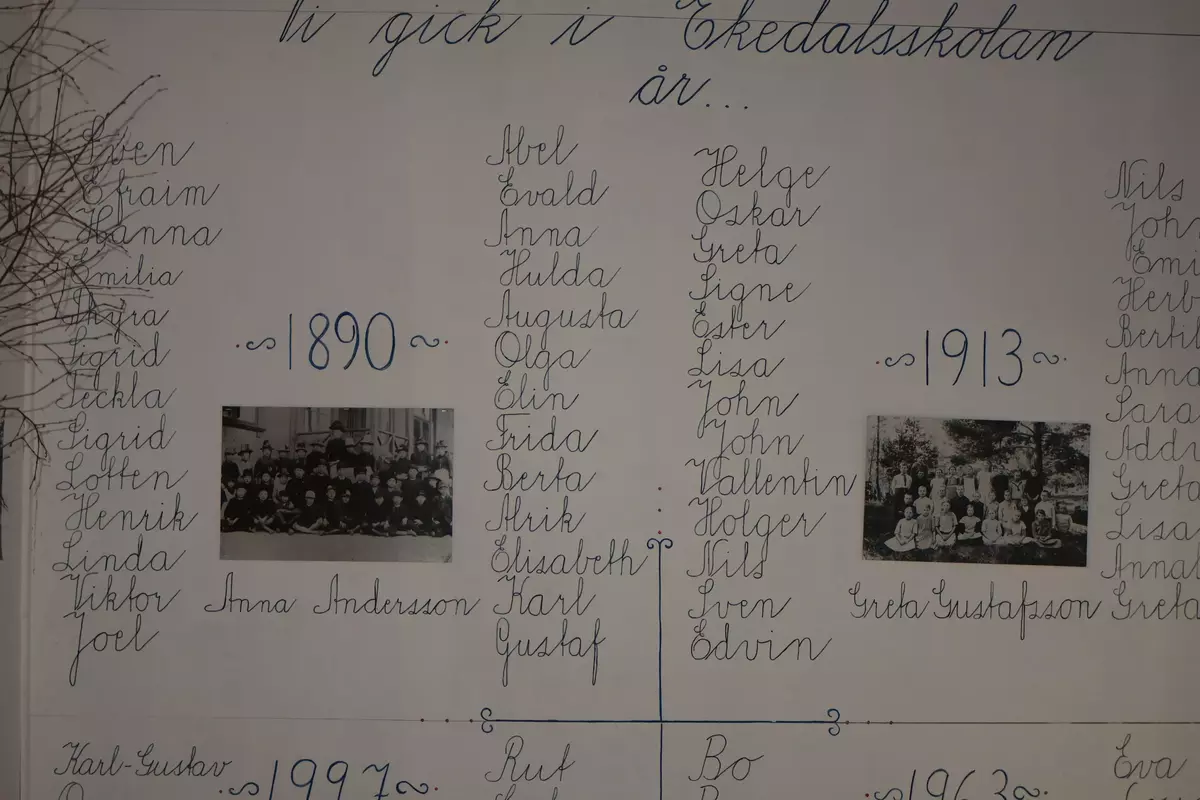 Vi gick i Ekedalsskolan
år...
Sven
Efraim
Hanna
Emilia
Thyra
Sigrid
Teckla
Sigrid
Lotten
Henrik
Linda
Viktor
Joel
1890
Anna Andersson
Abel
Evald
Anna
Hulda
Augusta
Olga
Elin
Frida
Berta
Alrik
Elisabeth
Karl
Gustaf
Helge
Oskar
Greta
Signe
Ester
Lisa
John
John
Vallentin
Holger
Nils
Sven
Edvin
1913
Greta Gustafsson
Nils
John
Emi
Herb
Bertil
Anna
Sara
Addi
Greta
Lisa
Anna
Greta
Karl-Gustav
1997
Rut
Bo
1963
Eva